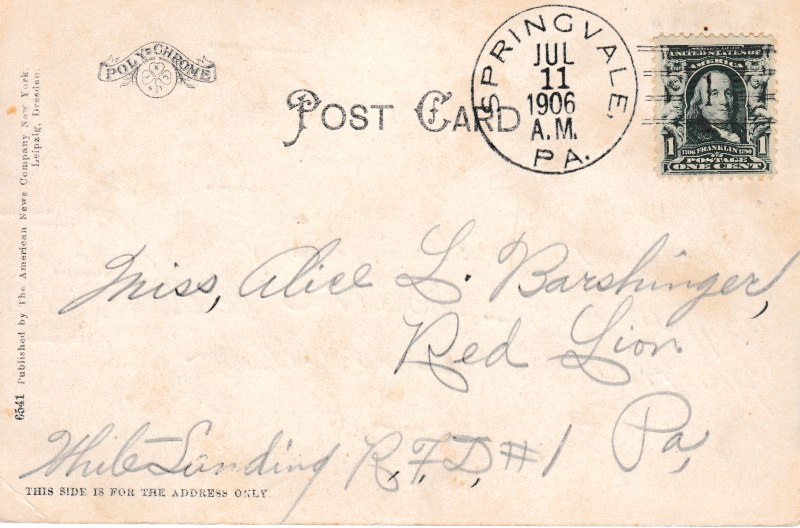 POLY-CHROME
POST CARD
SPRINGVALE,
JUL
11
1906
A.M.
PA.
UNITED STATES OF
AMERICA
1
1706 FRANKLIN 1790
1
POSTAGE
ONE CENT
6541 Published by The American News Company New York,
Leipzig, Dresden.
Miss, Alice L. Barshinger,
Red Lion
Pa,
R,F,D,#1
THIS SIDE IS FOR THE ADDRESS ONLY.